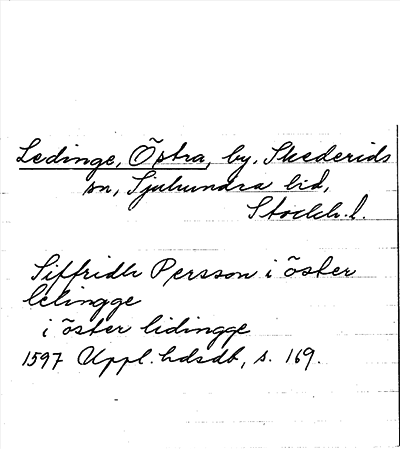 Ledinge, Östra, by. Skederids
sn, Sjuhundra hd,
Stockh. l.
Siffridh Persson i öster
lelingge
i öster lidingge
1597 Uppl. hdsdb, s. 169.